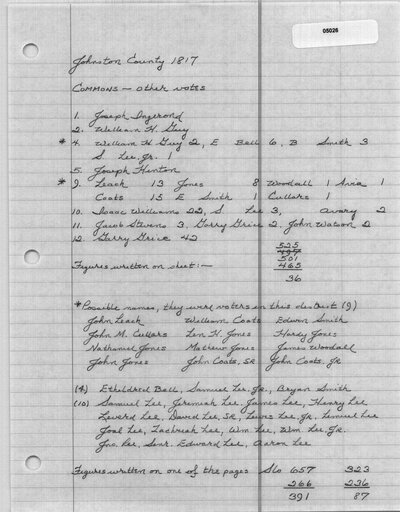 05026
Johnston County 1817
Commons - Other votes
1. Joseph Ingerond
2. William H. Guy
* 4. William H Guy 2, E Bell 6, B Smith 3
S Lee, Jr. 1
5. Joseph Hinton
* 9. Leach 13 Jones 8 Woodall 1 Avra 1
Coats 15 E Smith 1 Cullars 1
10. Isaac Williams 22, S Lee 3, Avary 2
11. Jacob Stevens 3, Garry Grice 2, John Watson 2
12. Garry Grice 42
525
501
Figures written on sheet:- 465
36
*Possible names, they were voters in this district (9)
John Leach William Coats Edwin Smith
John M. Cullars Len H. Jones Hardy Jones
Nathaniel Jones Mathew Jones James Woodall
John Jones John Coats, SR John Coats, JR
(4) Etheldred Bell, Samuel Lee, Jr., Bryan Smith
(10) Samuel Lee, Jeremiah Lee, James Lee, Henry Lee
Leverd Lee, David Lee, SR, Lewis Lee, Jr, Lemuel Lee
Joel Lee, Zachriah Lee, Wm Lee, Wm. Lee, JR.
Jno. Lee, Senr. Edward Lee, Aaron Lee
Figures written on one of the pages Slo 657 323
266 236
391 87